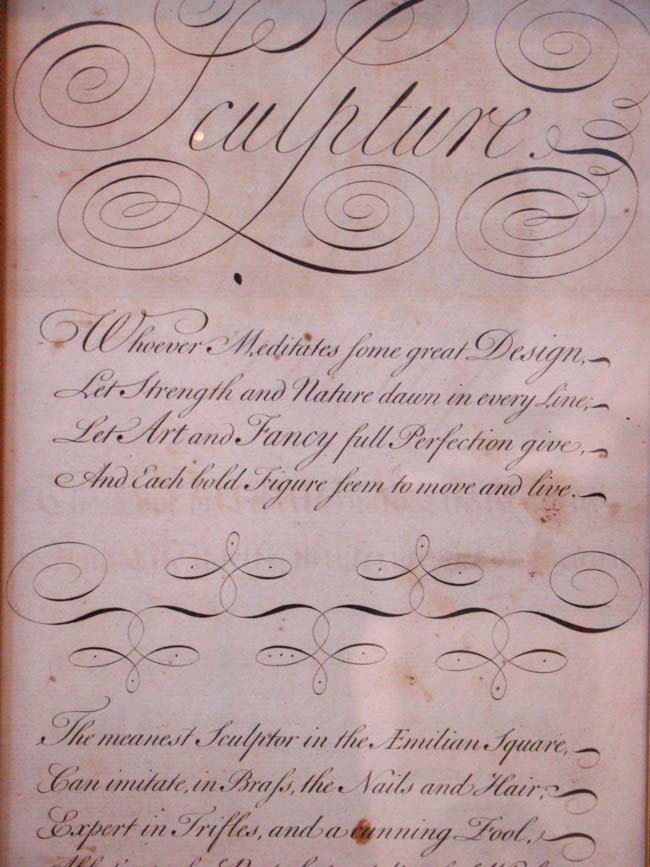 Sculpture.
Whoever Meditates ſome great Design,
Let Strength and Nature dawn in every Line;
Let Art and Fancy full Perfection give,
And Each bold Figure ſeem to move and live.
The meanest Sculptor in the Æmilian Square,
Can imitate, in Braſs, the Nails and Hair;
Expert in Trifles, and a cunning Fool,